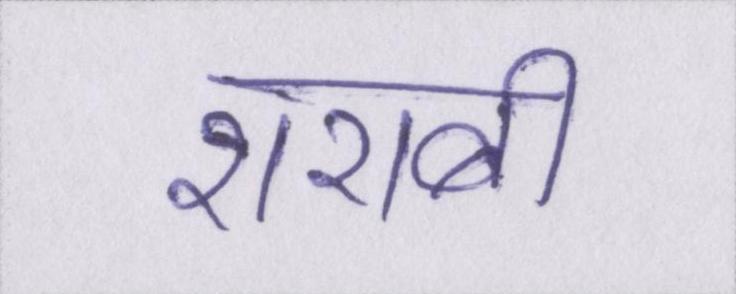 शराबी